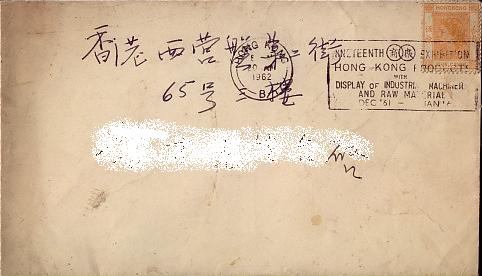 香港西营盤第二街
65号三樓
HONG KONG
1962
B
HONGKONG
NINETEENTH EXHIBITION
HONG KONG PRODUCTS
WITH
DISPLAY OF INDUSTRIAL MACHINERY
AND RAW MATERIAL
DEC '61 - JAN